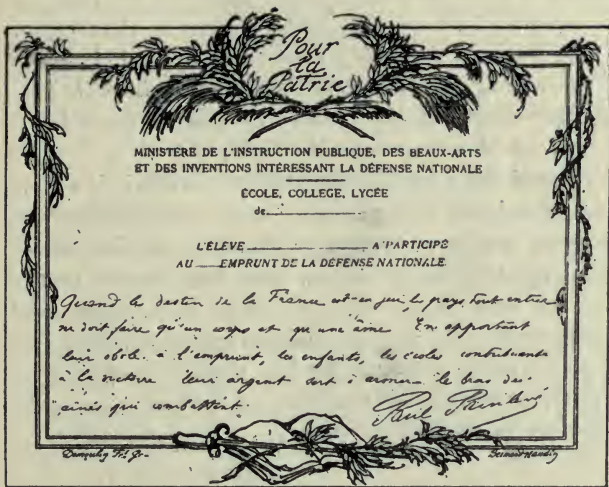 Pour
la
Patrie
MINISTÈRE DE L'INSTRUCTION PUBLIQUE, DES BEAUX-ARTS
ET DES INVENTIONS INTÉRESSANT LA DÉFENSE NATIONALE
ÉCOLE, COLLEGE, LYCÉE
de
L'ÉLEVE A PARTICIPÉ
AU EMPRUNT DE LA DÉFENSE NATIONALE.
Quand le destin de la France est en jeu, le pays tout entier
ne doit faire qu'un corps et qu'une âme En apportant
leur obole à l'emprunt, les enfants, les écoles contribuent
à la victoire leur argent sert à armer le bras des
ainés qui combattent.
Paul Painlevé
Bernard Naudin